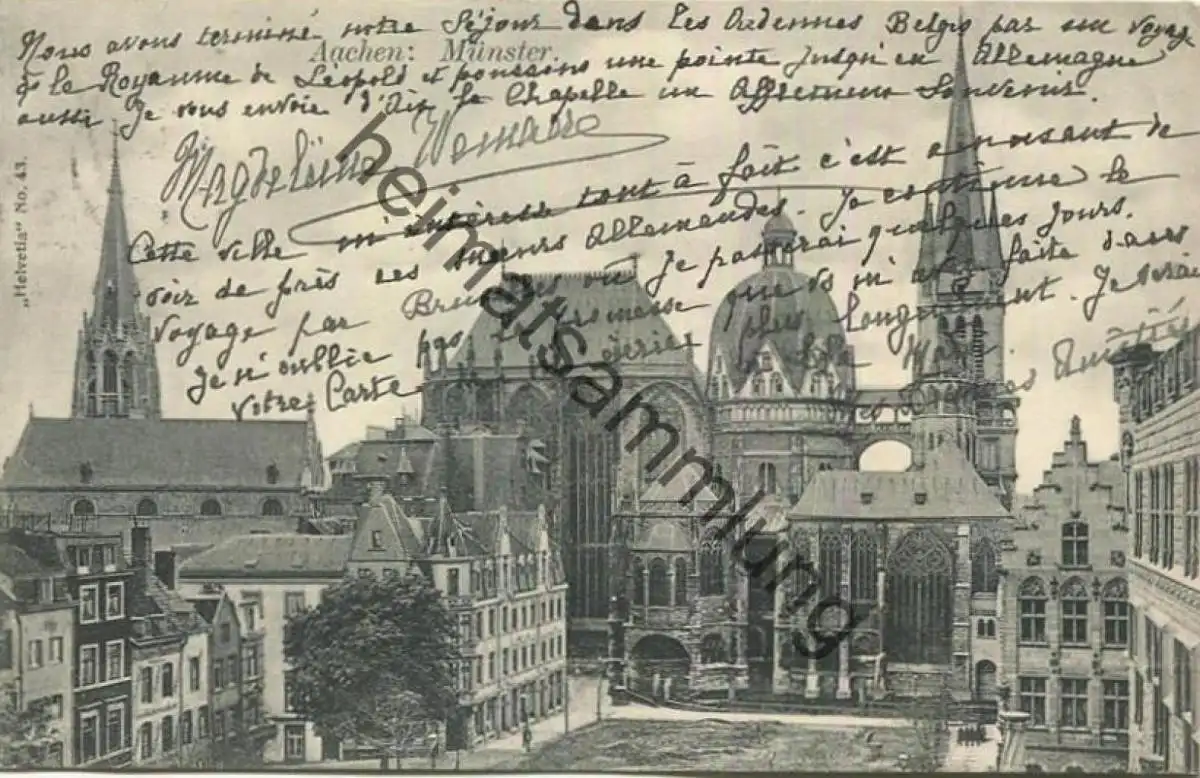 Nous avons terminé notre Séjour dans les Ardennes Belges par un voyage
Aachen: Münster.
le Royaume de Leopold et poussons une pointe jusqu'en Allemagne
aussi je vous envoie d'Aix la Chapelle un Affectueux Souvenir.
Magdeleine
Cette ville m'intéresse tout à fait c'est amusant de
voir de près les moeurs Allemandes. Je continue le
voyage par Bruxelles où je passerai quelques jours.
Je n'oublie pas la promesse que vous m'avez faite dans
votre Carte plus longuement. Je serai
"Helvetia" No. 43.
heimatsammlung